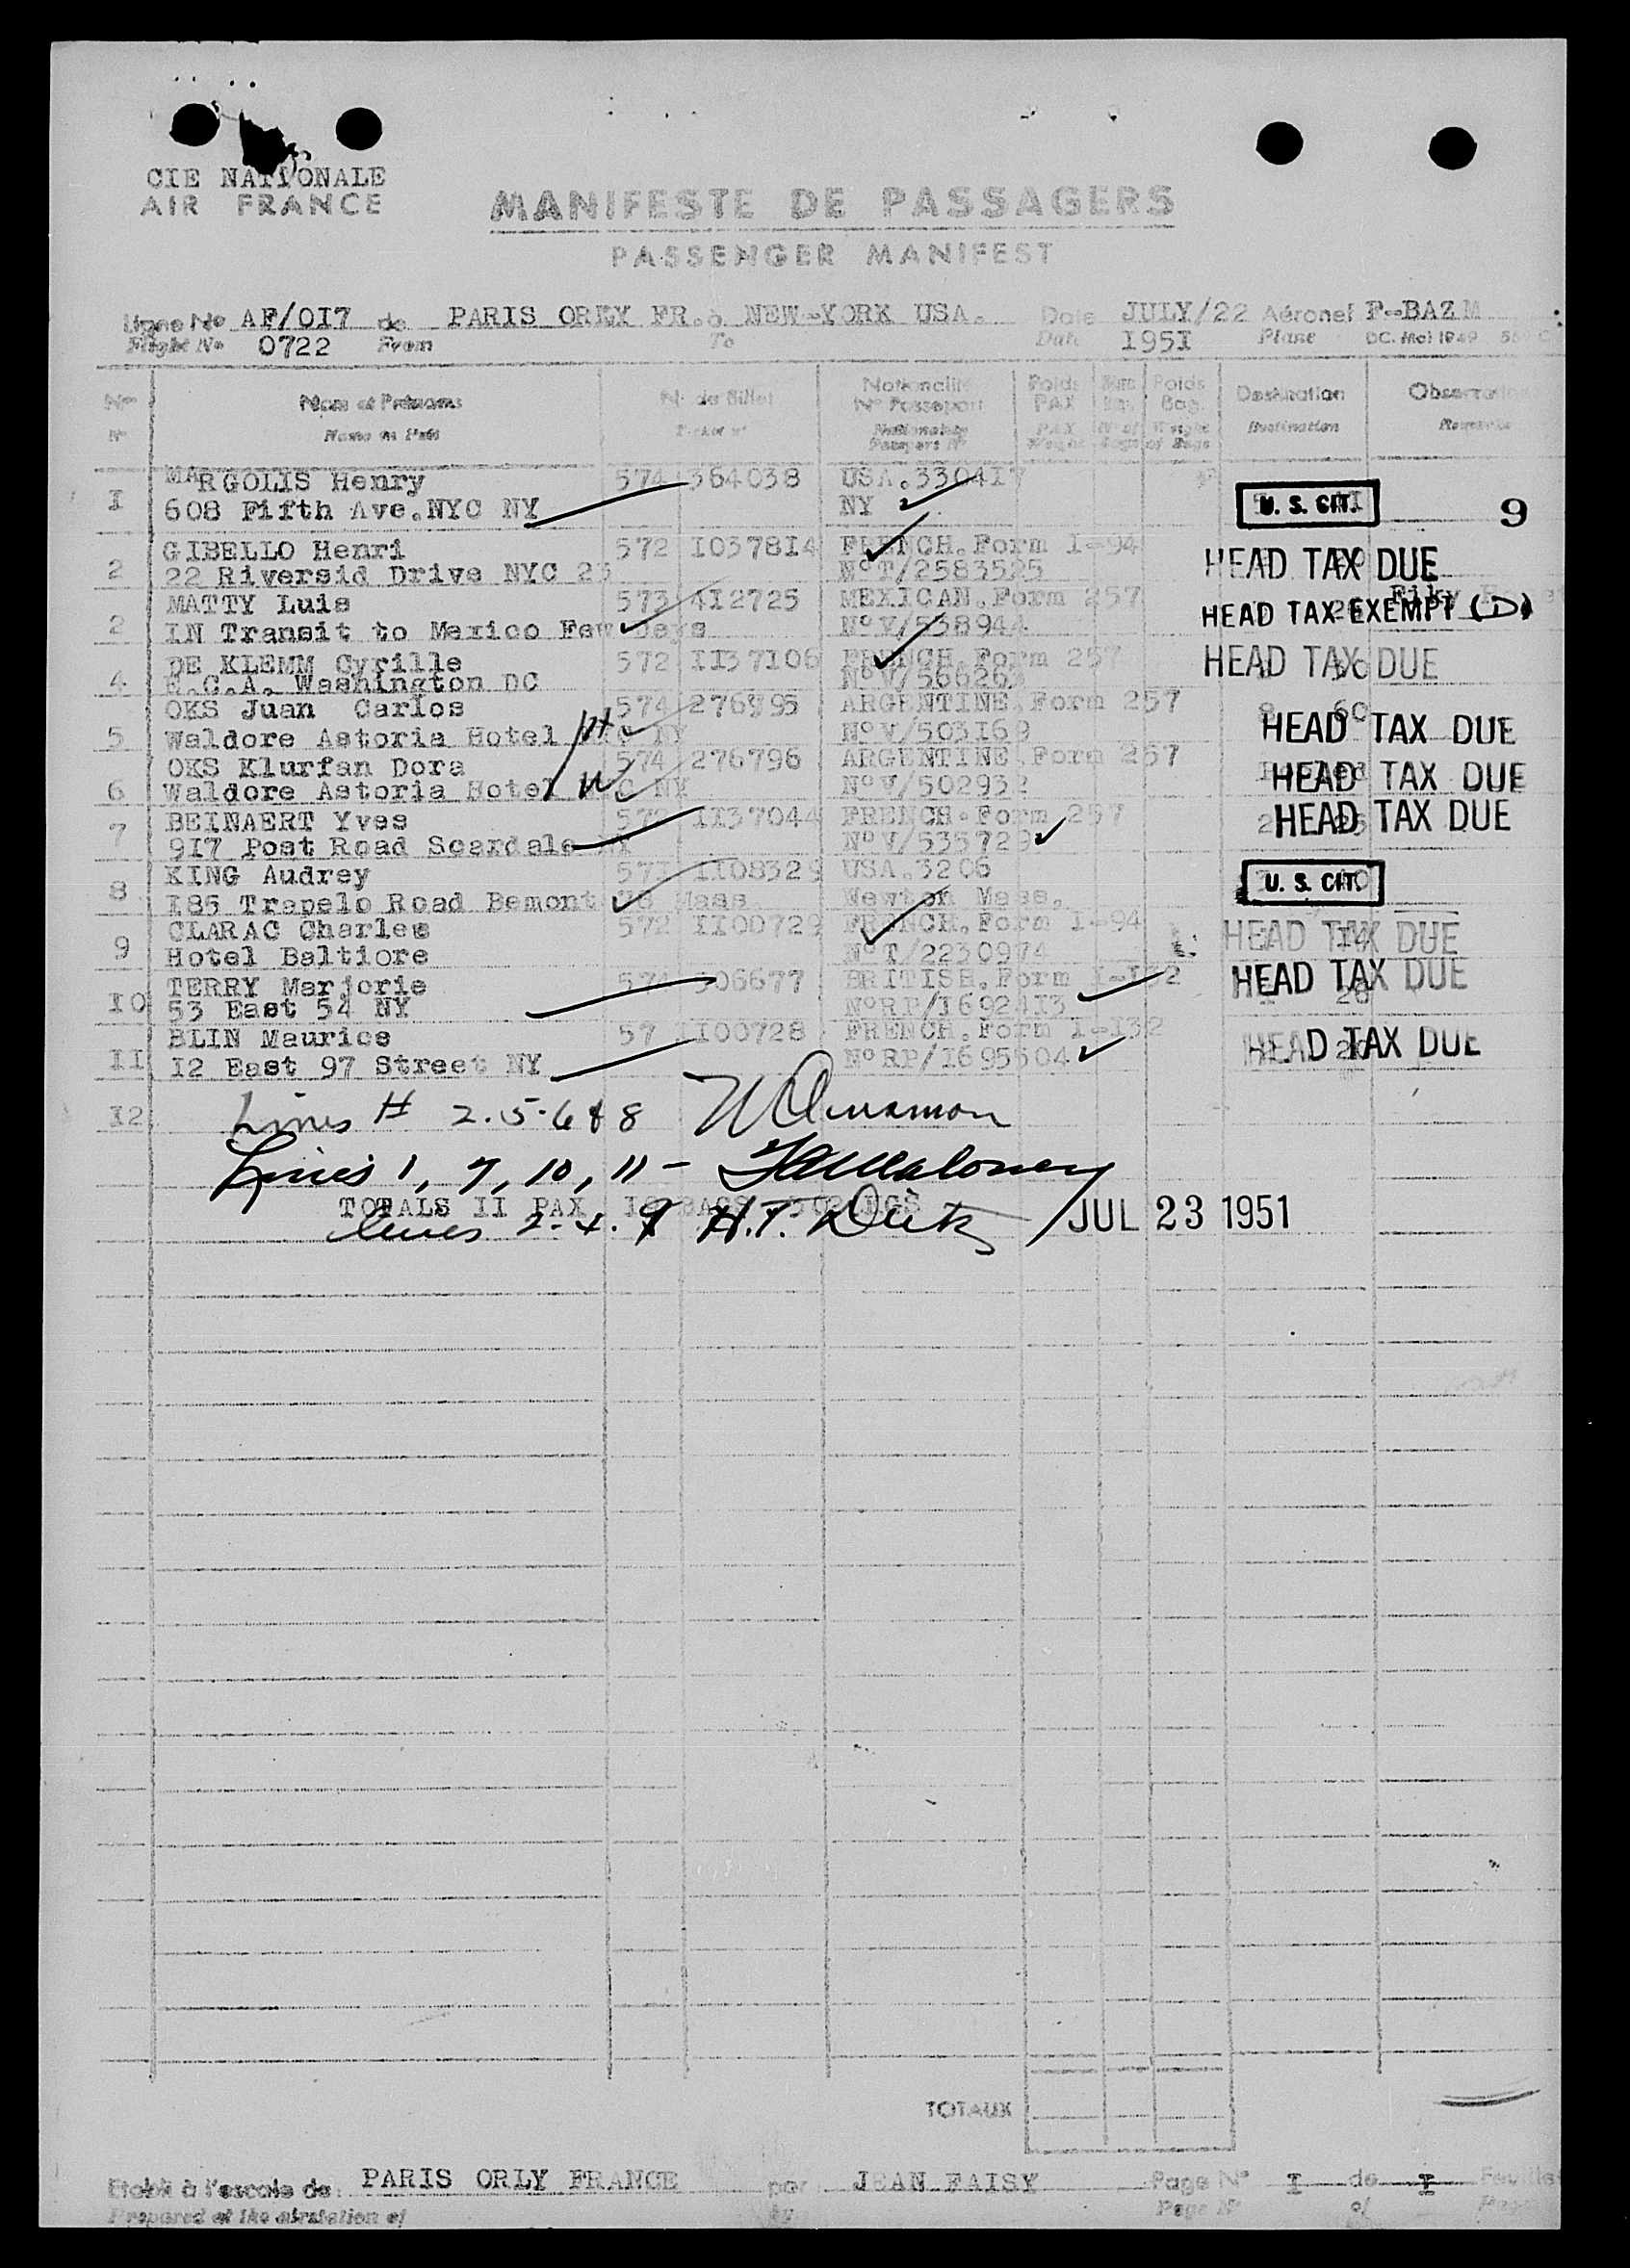 CIE NATIONALE
AIR FRANCE
MANIFESTE DE PASSAGERS
PASSENGER MANIFEST
Ligne No AF/OI7 de PARIS ORLY FR. à NEW-YORK USA. Date JULY/22 Aéronef F-BAZM
Flight No 0722 From To Date I95I Plane
No Noms et Prénoms No de Billet Nationalité Poids Poids Destination
No Passeport PAX Bag.
No Name in Full Ticket no Nationality PAX No of Weight Destination Remarks
Passport No Weight Bags of Bags
MARGOLIS Henry 574 364038 USA.330417
I 608 Fifth Ave.NYC NY NY U. S. CIT. 9
GIBELLO Henri 572 I037814 FRENCH.Form I-94
2 22 Riversid Drive NYC 25 NoT/2583525 HEAD TAX DUE
MATTY Luis 573 412725 MEXICAN.Form 257
2 IN Transit to Mexico Few Days NoV/538944 HEAD TAX EXEMPT (D)
DE KLEMM Cyrille 572 II37106 FRENCH.Form 257
4 E.C.A. Washington DC HEAD TAX DUE
OKS Juan Carlos 574 276795 ARGENTINE.Form 257
5 Waldore Astoria Hotel NYC NY NoV/503I69 HEAD TAX DUE
H
OKS Klurfan Dora 574 276796 ARGENTINE.Form 257
6 Waldore Astoria Hotel NYC NY NoV/502932 HEAD TAX DUE
W
BEINAERT Yves 572 II37044 FRENCH.Form 257
7 917 Post Road Scardale NY NoV/535729 HEAD TAX DUE
KING Audrey II08329 USA.3206
8 I85 Trapelo Road Bemont Mass Newton Mass. U. S. CIT.
CLARAC Charles 572 II00729 FRENCH.Form I-94
9 Hotel Baltiore NoT/2230974 HEAD TAX DUE
TERRY Marjorie 574 306677 BRITISH.Form I-I32
I0 53 East 54 NY NoRP/I692413 HEAD TAX DUE
BLIN Maurice 57 II00728 FRENCH.Form I-I32
II I2 East 97 Street NY NoRP/I695504 HEAD TAX DUE
I2 Lines # 2.5.6 & 8
Lines 1, 7, 10, 11 -
TOTALS II PAX
Lines 2. 4. 9 H.T. JUL 23 1951
TOTAUX
Etabli à l'escale de: PARIS ORLY FRANCE par JEAN FAISY Page No I de I
Prepared at the station of by Page No of